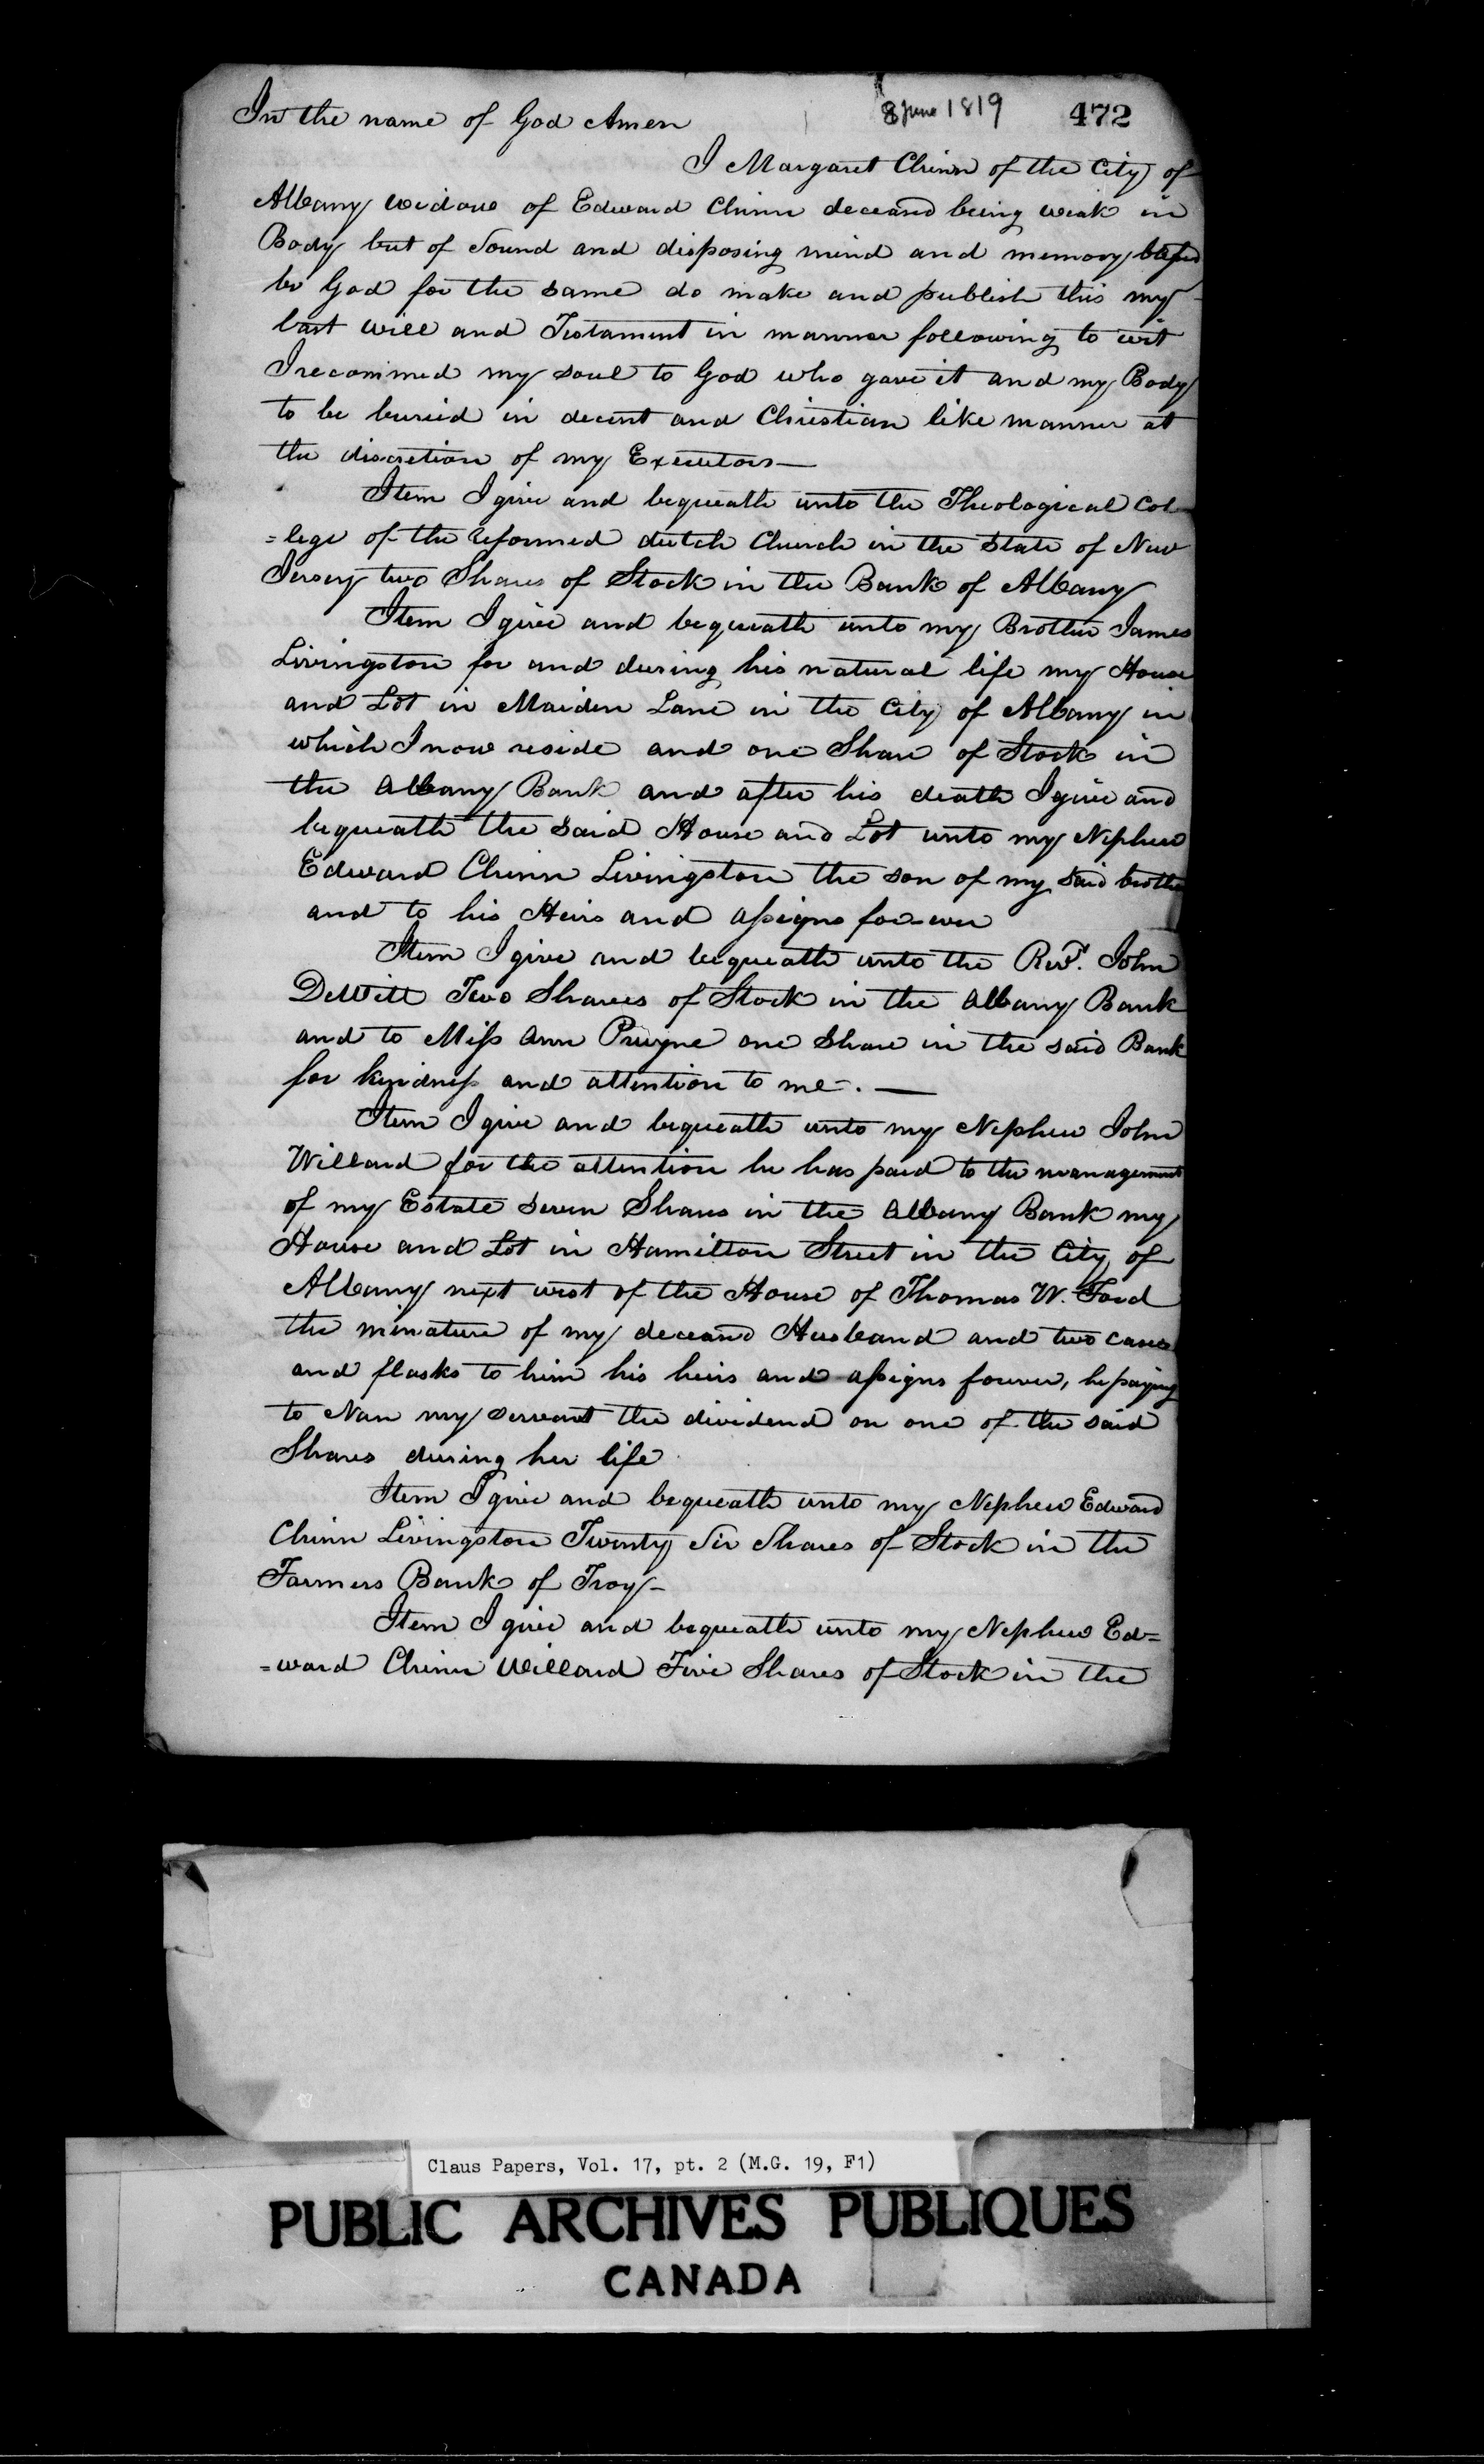 In the name of God Amen
8 June 1819
472
I Margaret Chinn of the City of
Albany widow of Edward Chinn deceased being weak in
Body but of Sound and disposing mind and memory blessed
be God for the same do make and publish this my
last will and Testament in manner following to wit
I recommed my soul to God who gave it and my Body
to be buried in decent and Christian like manner at
the discretion of my Executors—
Item I give and bequeath unto the Theological Col
=lege of the reformed dutch Church in the State of New
Jersey two Shares of Stock in the Bank of Albany
Item I give and bequeath unto my Brother James
Livingston for and during his natural life my House
and Lot in Maiden Lane in the City of Albany in
which I now reside and one Share of Stock in
the Albany Bank and after his death I give and
bequeath the said House and Lot unto my Nephew
Edward Chinn Livingston the son of my said brother
and to his Heirs and assigns for-ever
Item I give and bequeath unto the Revd. John
DeWitt Two Shares of Stock in the Albany Bank
and to Miss Ann Pruyne one Share in the said Bank
for kindness and attention to me. —
Item I give and bequeath unto my Nephew John
Willard for the attention he has paid to the management
of my Estate Seven Shares in the Albany Bank my
House and Lot in Hamilton Street in the City of
Albany next west of the House of Thomas W. Ford
the minature of my deceased Husband and two cases
and flasks to him his heirs and assigns forever, he paying
to Nan my servant the dividend on one of the said
Shares during her life
Item I give and bequeath unto my Nephew Edward
Chinn Livingston Twenty Six Shares of Stock in the
Farmers Bank of Troy-
Item I give and bequeath unto my Nephew Ed=
=ward Chinn Willard Five Shares of Stock in the
Claus Papers, Vol. 17, pt. 2 (M.G. 19, F1)
PUBLIC ARCHIVES PUBLIQUES
CANADA